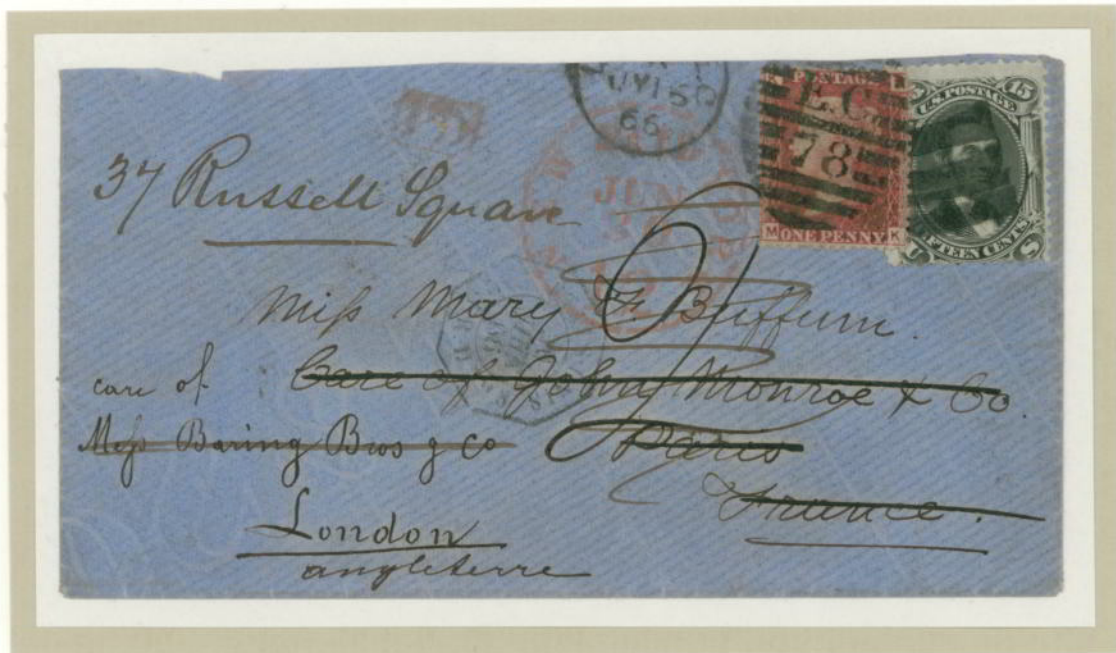 JY 15
66
E.C.
78
POSTAGE
ONE PENNY
M K
15
U.S. POSTAGE
FIFTEEN CENTS
U S
NEW
PAID
JUN
37 Russell Square
Miss Mary F. Buffum.
care of Care of John Monroe & Co
Mess Baring Bros & Co Paris
France.
London
angleterre